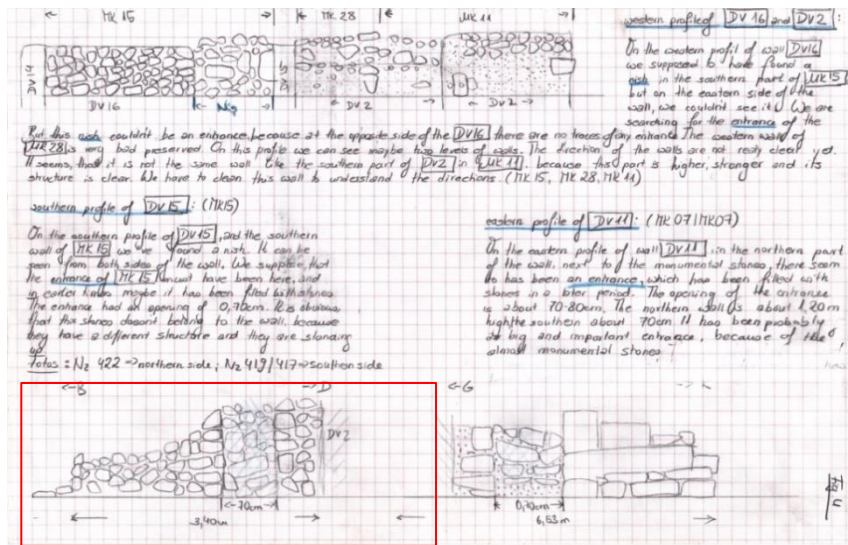 MK 15
MK 28
MK 11
DV 14
DV 16
DV 2
DV 2
western profile of DV 16 and DV 2 :
On the western profil of wall DV16
we supposed to have found a
nish in the southern part of MK15
but on the eastern side of the
wall, we couldn't see it. We are
searching for the entrance of the
But this nish couldn't be an entrance, because at the opposite side of the DV16 there are no traces of any entrance. The western wall of
MK28 is very bad preserved. On this profile we can see maybe two levels of walls. The direction of the walls are not realy clear yet.
It seems, that it is not the same wall like the southern part of DV2 in MK11, because this part is higher, stronger and its
structure is clear. We have to clean this wall to understand the directions. (MK15, MK28, MK11)
southern profile of DV15 : (MK15)
On the southern profile of DV15, and the southern
wall of MK15 we 've found a nish. It can be
seen from both sides of the wall. We suppose, that
the entrance of MK15 must have been here, and
in earlier times maybe it has been filled with stones
The entrance had an opening of 0,70m. It is obvious
that this stones doesnt belong to the wall, because
they have a different structure and they are standing
Fotos : Nz 422 → northern side; Nz 419/417 → southern side
eastern profile of DV11 : (MK07/MK07)
On the eastern profile of wall DV11, in the northern part
of the wall, next to the monumental stones, there seem
to has been an entrance, which has been filled with
stones in a later period. The opening of the entrance
is about 70-80cm. The northern wall is about 1,20m
hight the southern about 70cm It has been probably
a big and important entrance, because of the
almost monumental stones
← B
→ D
DV2
← 70cm →
3,40m
← G
0,70cm
6,53m